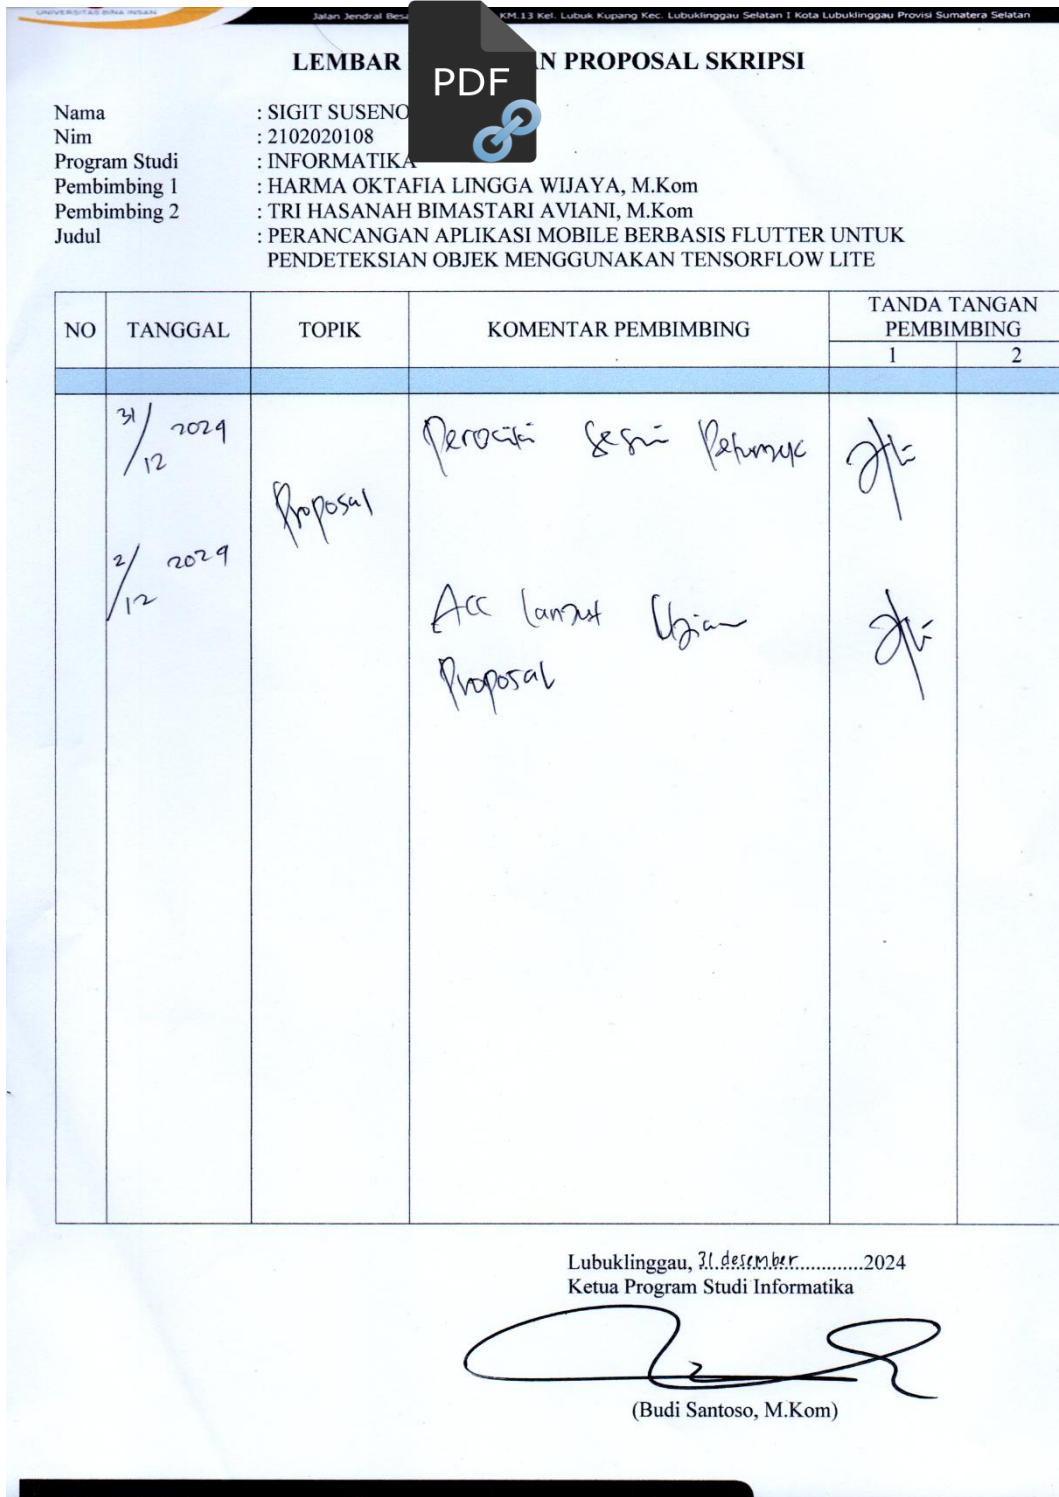 UNIVERSITAS BINA INSAN
Jalan Jendral Besa KM.13 Kel. Lubuk Kupang Kec. Lubuklinggau Selatan I Kota Lubuklinggau Provisi Sumatera Selatan
LEMBAR AN PROPOSAL SKRIPSI
PDF
Nama : SIGIT SUSENO
Nim : 2102020108
Program Studi : INFORMATIKA
Pembimbing 1 : HARMA OKTAFIA LINGGA WIJAYA, M.Kom
Pembimbing 2 : TRI HASANAH BIMASTARI AVIANI, M.Kom
Judul : PERANCANGAN APLIKASI MOBILE BERBASIS FLUTTER UNTUK
PENDETEKSIAN OBJEK MENGGUNAKAN TENSORFLOW LITE
NO TANGGAL TOPIK KOMENTAR PEMBIMBING TANDA TANGAN PEMBIMBING
1 2
31/12 2024
Proposal
2/12 2024
Acc lanjut Ujian
Proposal
Lubuklinggau, 31 desember 2024
Ketua Program Studi Informatika
(Budi Santoso, M.Kom)